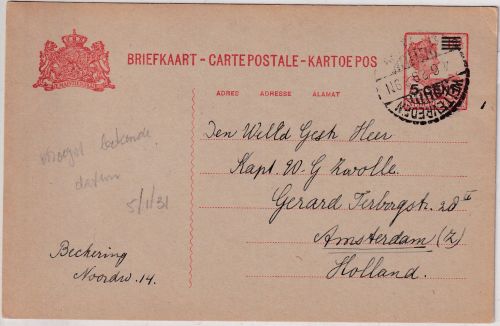 BRIEFKAART - CARTE POSTALE - KARTOEPOS
ADRES ADRESSE ALAMAT
WELTEVREDEN
5
Den Weled Gestr Heer
Kapt. W. G Zwolle.
Gerard Terborgst. 28 II
Amsterdam (Z)
Holland.
vroegst bekende
datum
5/1/31
Beckering
Noordw. 14.